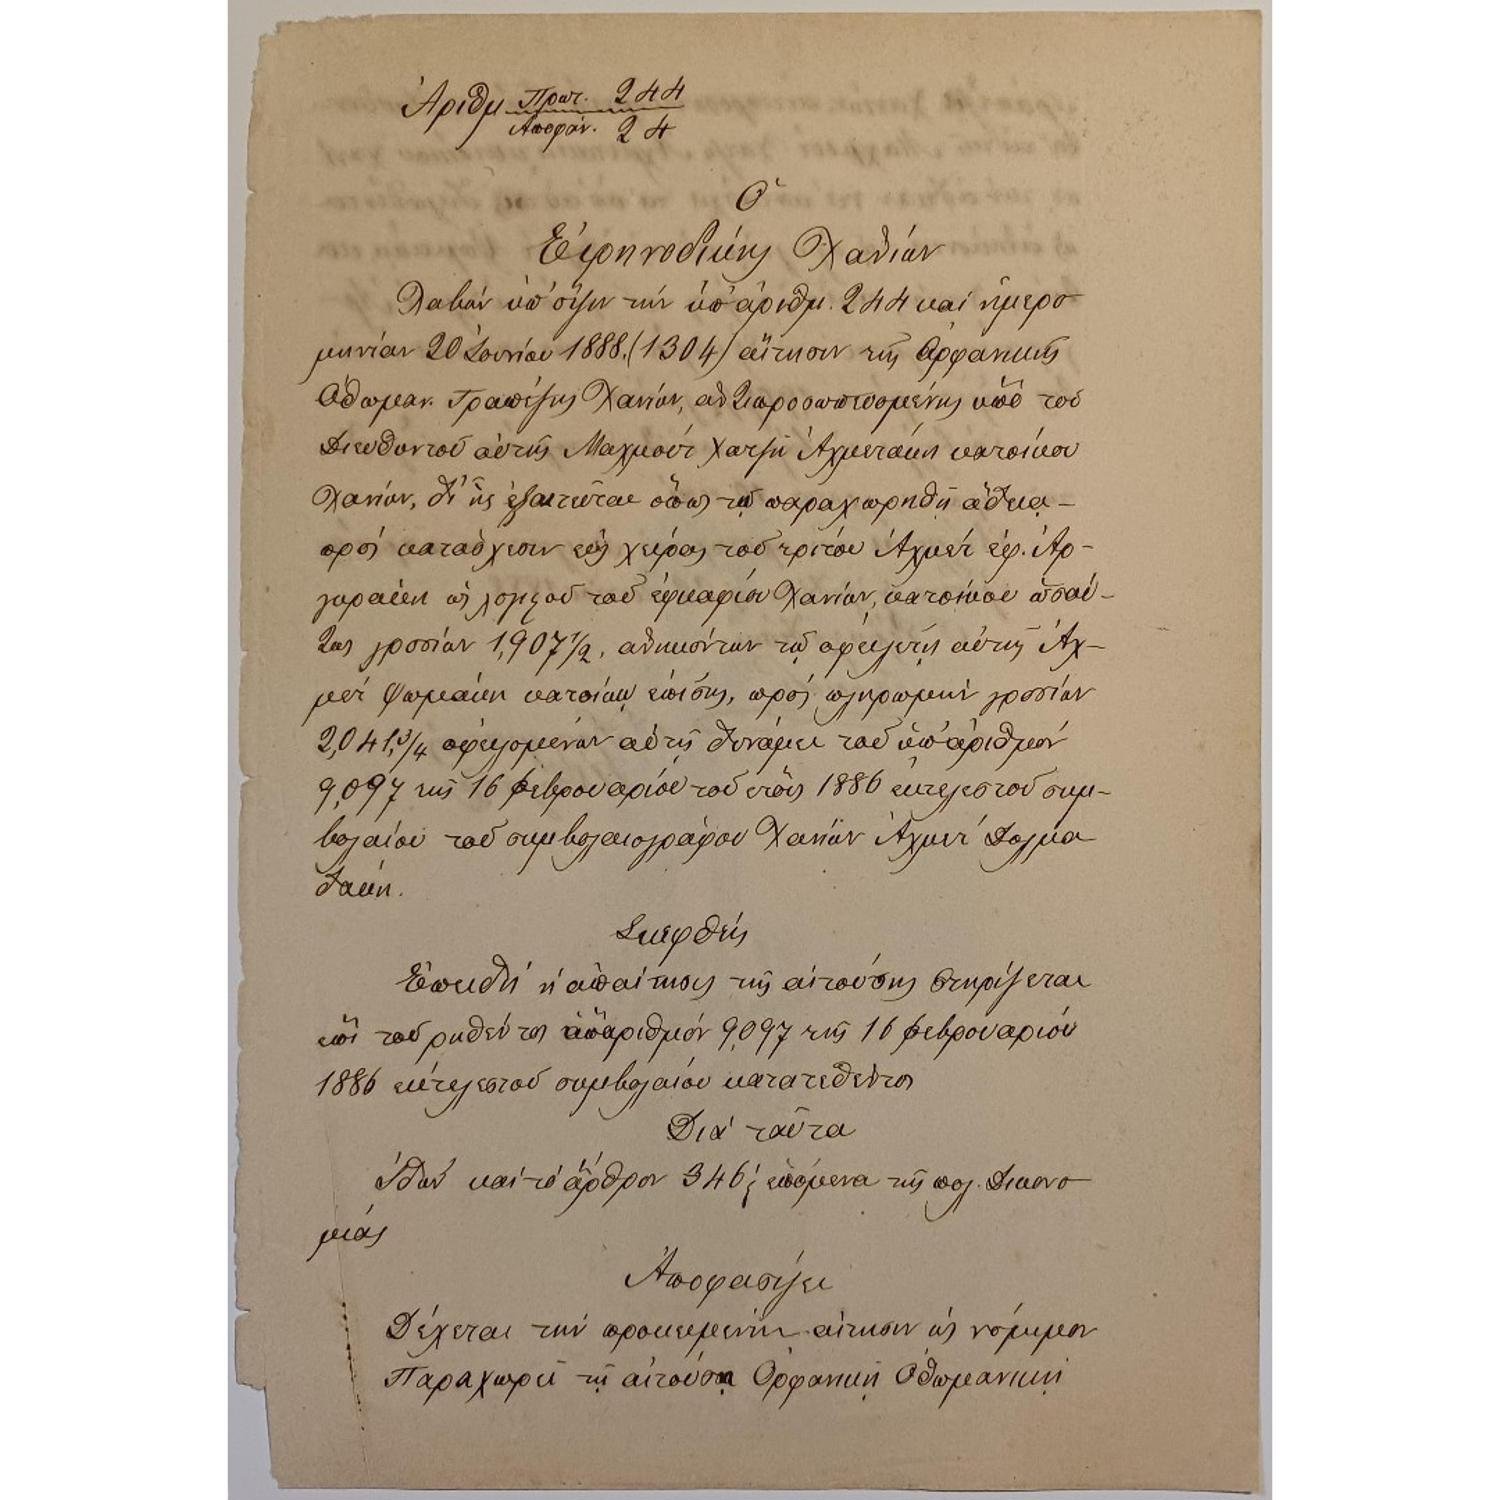 Ἀριθμ Πρωτ. 244
Ἀποφάν. 24
Ὁ
Εἰρηνοδίκης Χανίων
Λαβὼν ὑπ' ὄψιν τὴν ὑπ' ἀριθμ. 244 καὶ ἡμερο
μηνίαν 20 Ἰουνίου 1888. (1304) αἴτησιν τῆς Ὀρφανικῆς
Ὀθωμαν. Τραπέζης Χανίων, ἀντιπροσωπευομένης ὑπὸ τοῦ
Διευθυντοῦ αὐτῆς Μαχμοὺτ Χατζῆ Ἀχμετάκη κατοίκου
Χανίων, δι' ἧς ἐξαιτεῖται ὅπως τῇ παραχωρηθῇ ἄδεια –
πρὸς κατάσχεσιν εἰς χεῖρας τοῦ τρίτου Ἀχμὲτ ἐφ. Ἀρ–
γυράκη ὡς λογιζοῦ τοῦ ἐφκαφίου Χανίων, κατοίκου ὡσαύ–
τως γροσίων 1,907 1/2, ἀνηκόντων τῷ ὀφειλέτῃ αὐτῆς Ἀχ–
μὲτ Ψωμάκη κατοίκῳ ἐπίσης, πρὸς πληρωμὴν γροσίων
2,041, 3/4 ὀφειλομένων αὐτῇ δυνάμει τοῦ ὑπ' ἀριθμὸν
9,097 τῆς 16 Φεβρουαρίου τοῦ ἔτους 1886 ἐκτελεστοῦ συμ–
βολαίου τοῦ συμβολαιογράφου Χανίων Ἀχμὲτ Δολμα
δάκη.
Σκεφθεὶς
Ἐπειδὴ ἡ ἀπαίτησις τῆς αἰτούσης στηρίζεται
ἐπὶ τοῦ ῥηθέντος ὑπ' ἀριθμὸν 9,097 τῆς 16 Φεβρουαρίου
1886 ἐκτελεστοῦ συμβολαίου κατατεθέντος
Διὰ ταῦτα
Ἰδὼν καὶ τὸ ἄρθρον 346 ἑπόμενα τῆς πολ. Δικονο
μίας
Ἀποφασίζει
Δέχεται τὴν προκειμένην αἴτησιν ὡς νόμιμον
Παραχωρεῖ τῇ αἰτούσῃ Ὀρφανικῇ Ὀθωμανικῇ